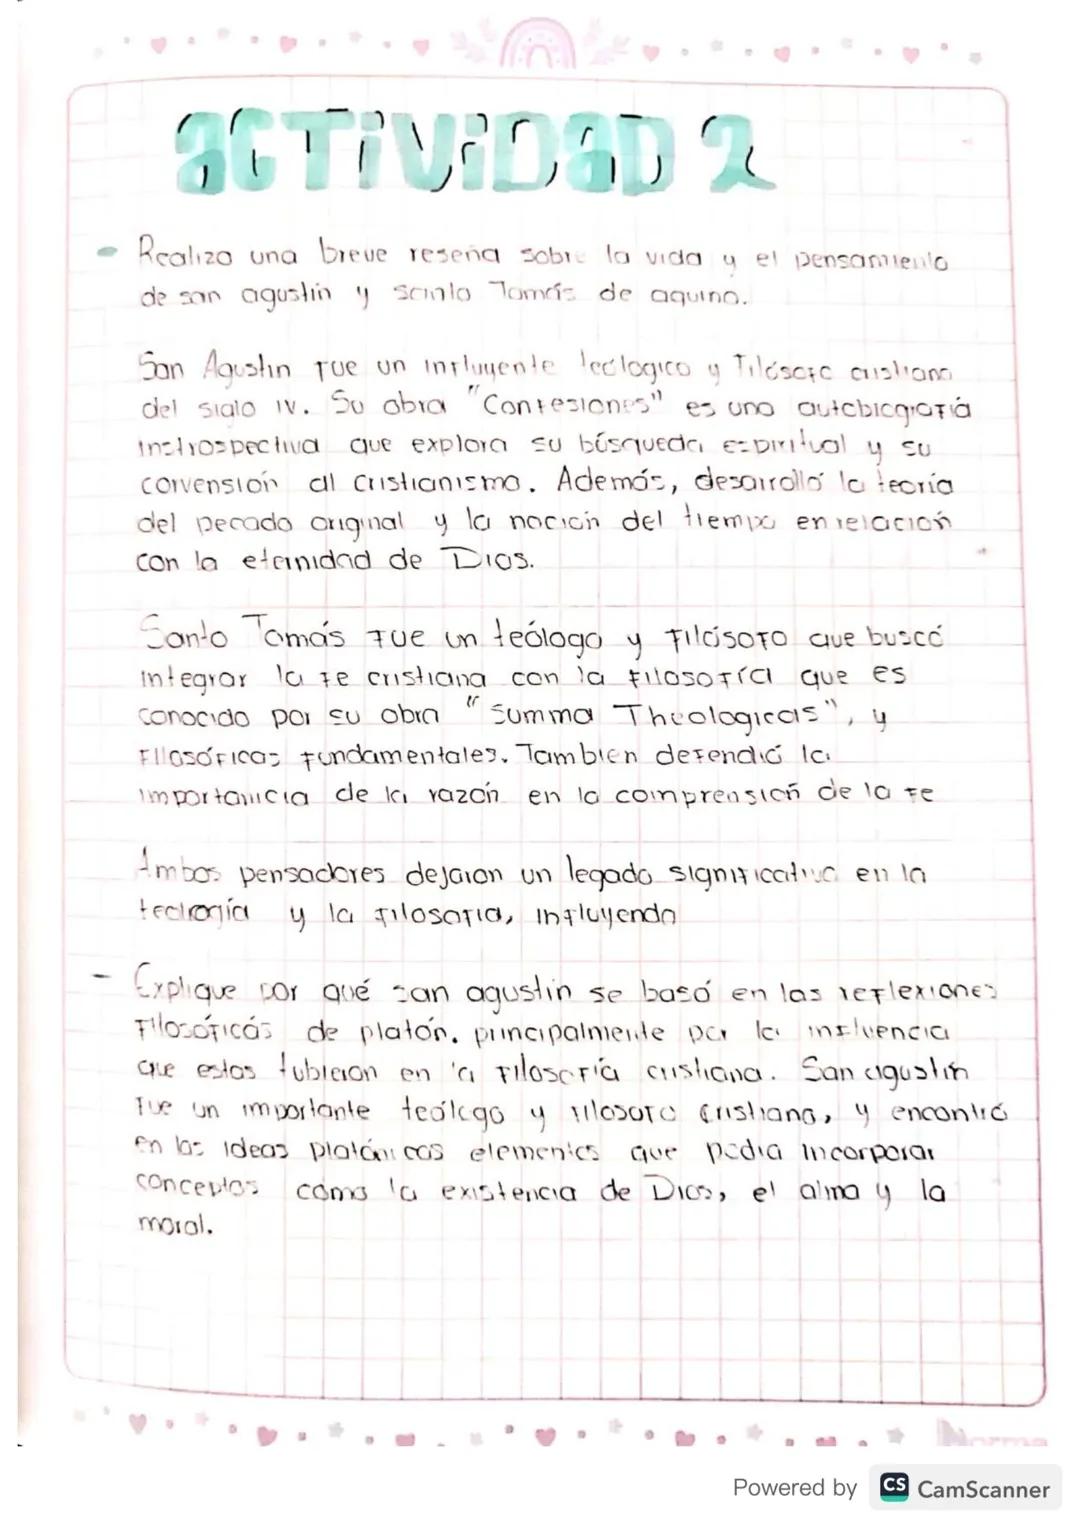 ACTIVIDAD 2
- Realiza una breve reseña sobre la vida y el pensamiento
de san agustin y santo Tomás de aquino.
San Agustin fue un influyente teologico y filósofo cristiano
del siglo IV. Su obra "Confesiones" es una autobiografía
instrospectiva que explora su búsqueda espiritual y su
corvensión al cristianismo. Además, desarrolló la teoría
del pecado original y la noción del tiempo en relación
con la eternidad de Dios.
Santo Tomás fue un teólogo y filósofo que buscó
integrar la fe cristiana con la filosofía que es
conocido por su obra "Summa Theologicas", y
filosóficas fundamentales. Tambien defendió la
importancia de la razón en la comprensión de la fe
Ambos pensadores dejaron un legado significativo en la
teología y la filosofia, influyendo
- Explique por qué san agustin se basó en las reflexiones
filosóficas de platón. principalmente por la influencia
que estas tubieron en la filosofía cristiana. San agustin
fue un importante teólogo y filosofo cristiano, y encontró
en las ideas platónicas elementos que podia incorporar
conceptos como la existencia de Dios, el alma y la
moral.
Norma
Powered by CS CamScanner